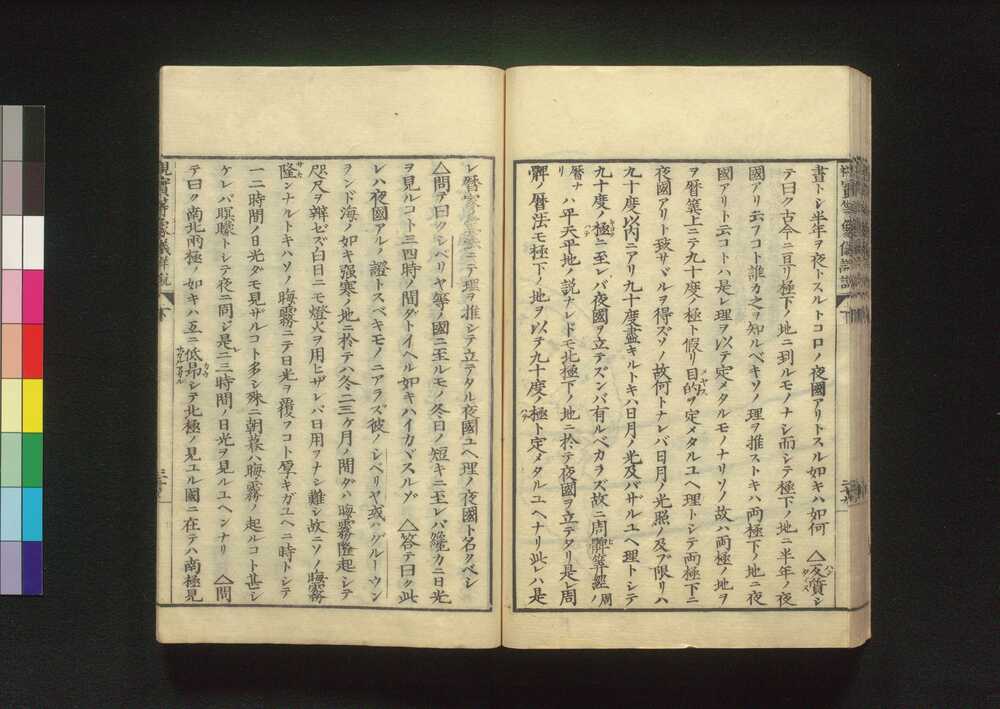 晝トシ半年ヲ夜トスルトコロノ夜國アリトスル如キハ如何 △反質シ
テ曰ク古今ニ亘リ極下ノ地ニ到ルモノナシ而シテ極下ノ地ニ半年ノ夜
國アリ云フコト誰カ之ヲ知ルベキソノ理ヲ推ストキハ両極下ノ地ニ夜
國アリト云コトハ是レ理ヲ以テ定メタルモノナリソノ故ハ両極ノ地ヲ
ヲ暦算上ニテ九十度ノ極ト假リニ目的ヲ定メタルユヘ理トシテ両極下ニ
夜國アリト致サヾルヲ得ズソノ故何トナレバ日月ノ光照ノ及ブ限リハ
九十度以内ニアリ九十度盡キルトキハ日月ノ光及バザルユヘ理トシテ
九十度ノ極ニ至レバ夜國ヲ立テズンバ有ルベカラズ故ニ周髀算經ノ周
暦ナリハ平天平地ノ説ナレドモ北極下ノ地ニ於テ夜國ヲ立テタリ是レ周
髀ノ暦法モ極下ノ地ヲ以テ九十度ノ極ト定メタルユヘナリ此レハ是
レ暦家ニテ理ヲ推シテ立テタル夜國ユヘ理ノ夜國ト名クベシ
△問テ曰クシベリヤ等ノ國ニ至ルモノ冬日ノ短キニ至レバ纔カニ日光
ヲ見ルコト三四時ノ間ダトイヘル如キハイカバスルゾ △答テ曰ク此
レハ夜國アルノ證トスベキモノニアラズ彼ノシベリヤ或ハグルーウン
ヲンド海ノ如キ强寒ノ地ニ於テハ冬二三ケ月ノ間ダハ晦霧隆起シテ
咫尺ヲ辨ゼズ白日ニモ燈火ヲ用ヒザレバ日用ヲナシ難シ故ニソノ晦霧
隆ンナルトキハソノ晦霧ニテ日光ヲ覆フコト厚キガユヘニ時トシテ
一二時間ノ日光ダモ見ザルコト多シ殊ニ朝暮ハ晦霧ノ起ルコト甚シ
ケレバ瞑曚トシテ夜ニ同ジ是レ二三時間ノ日光ヲ見ルユヘンナリ △問
テ曰ク南北両極ノ如キハ互ニ低昂シテ北極ノ見ユル國ニ在テハ南極見